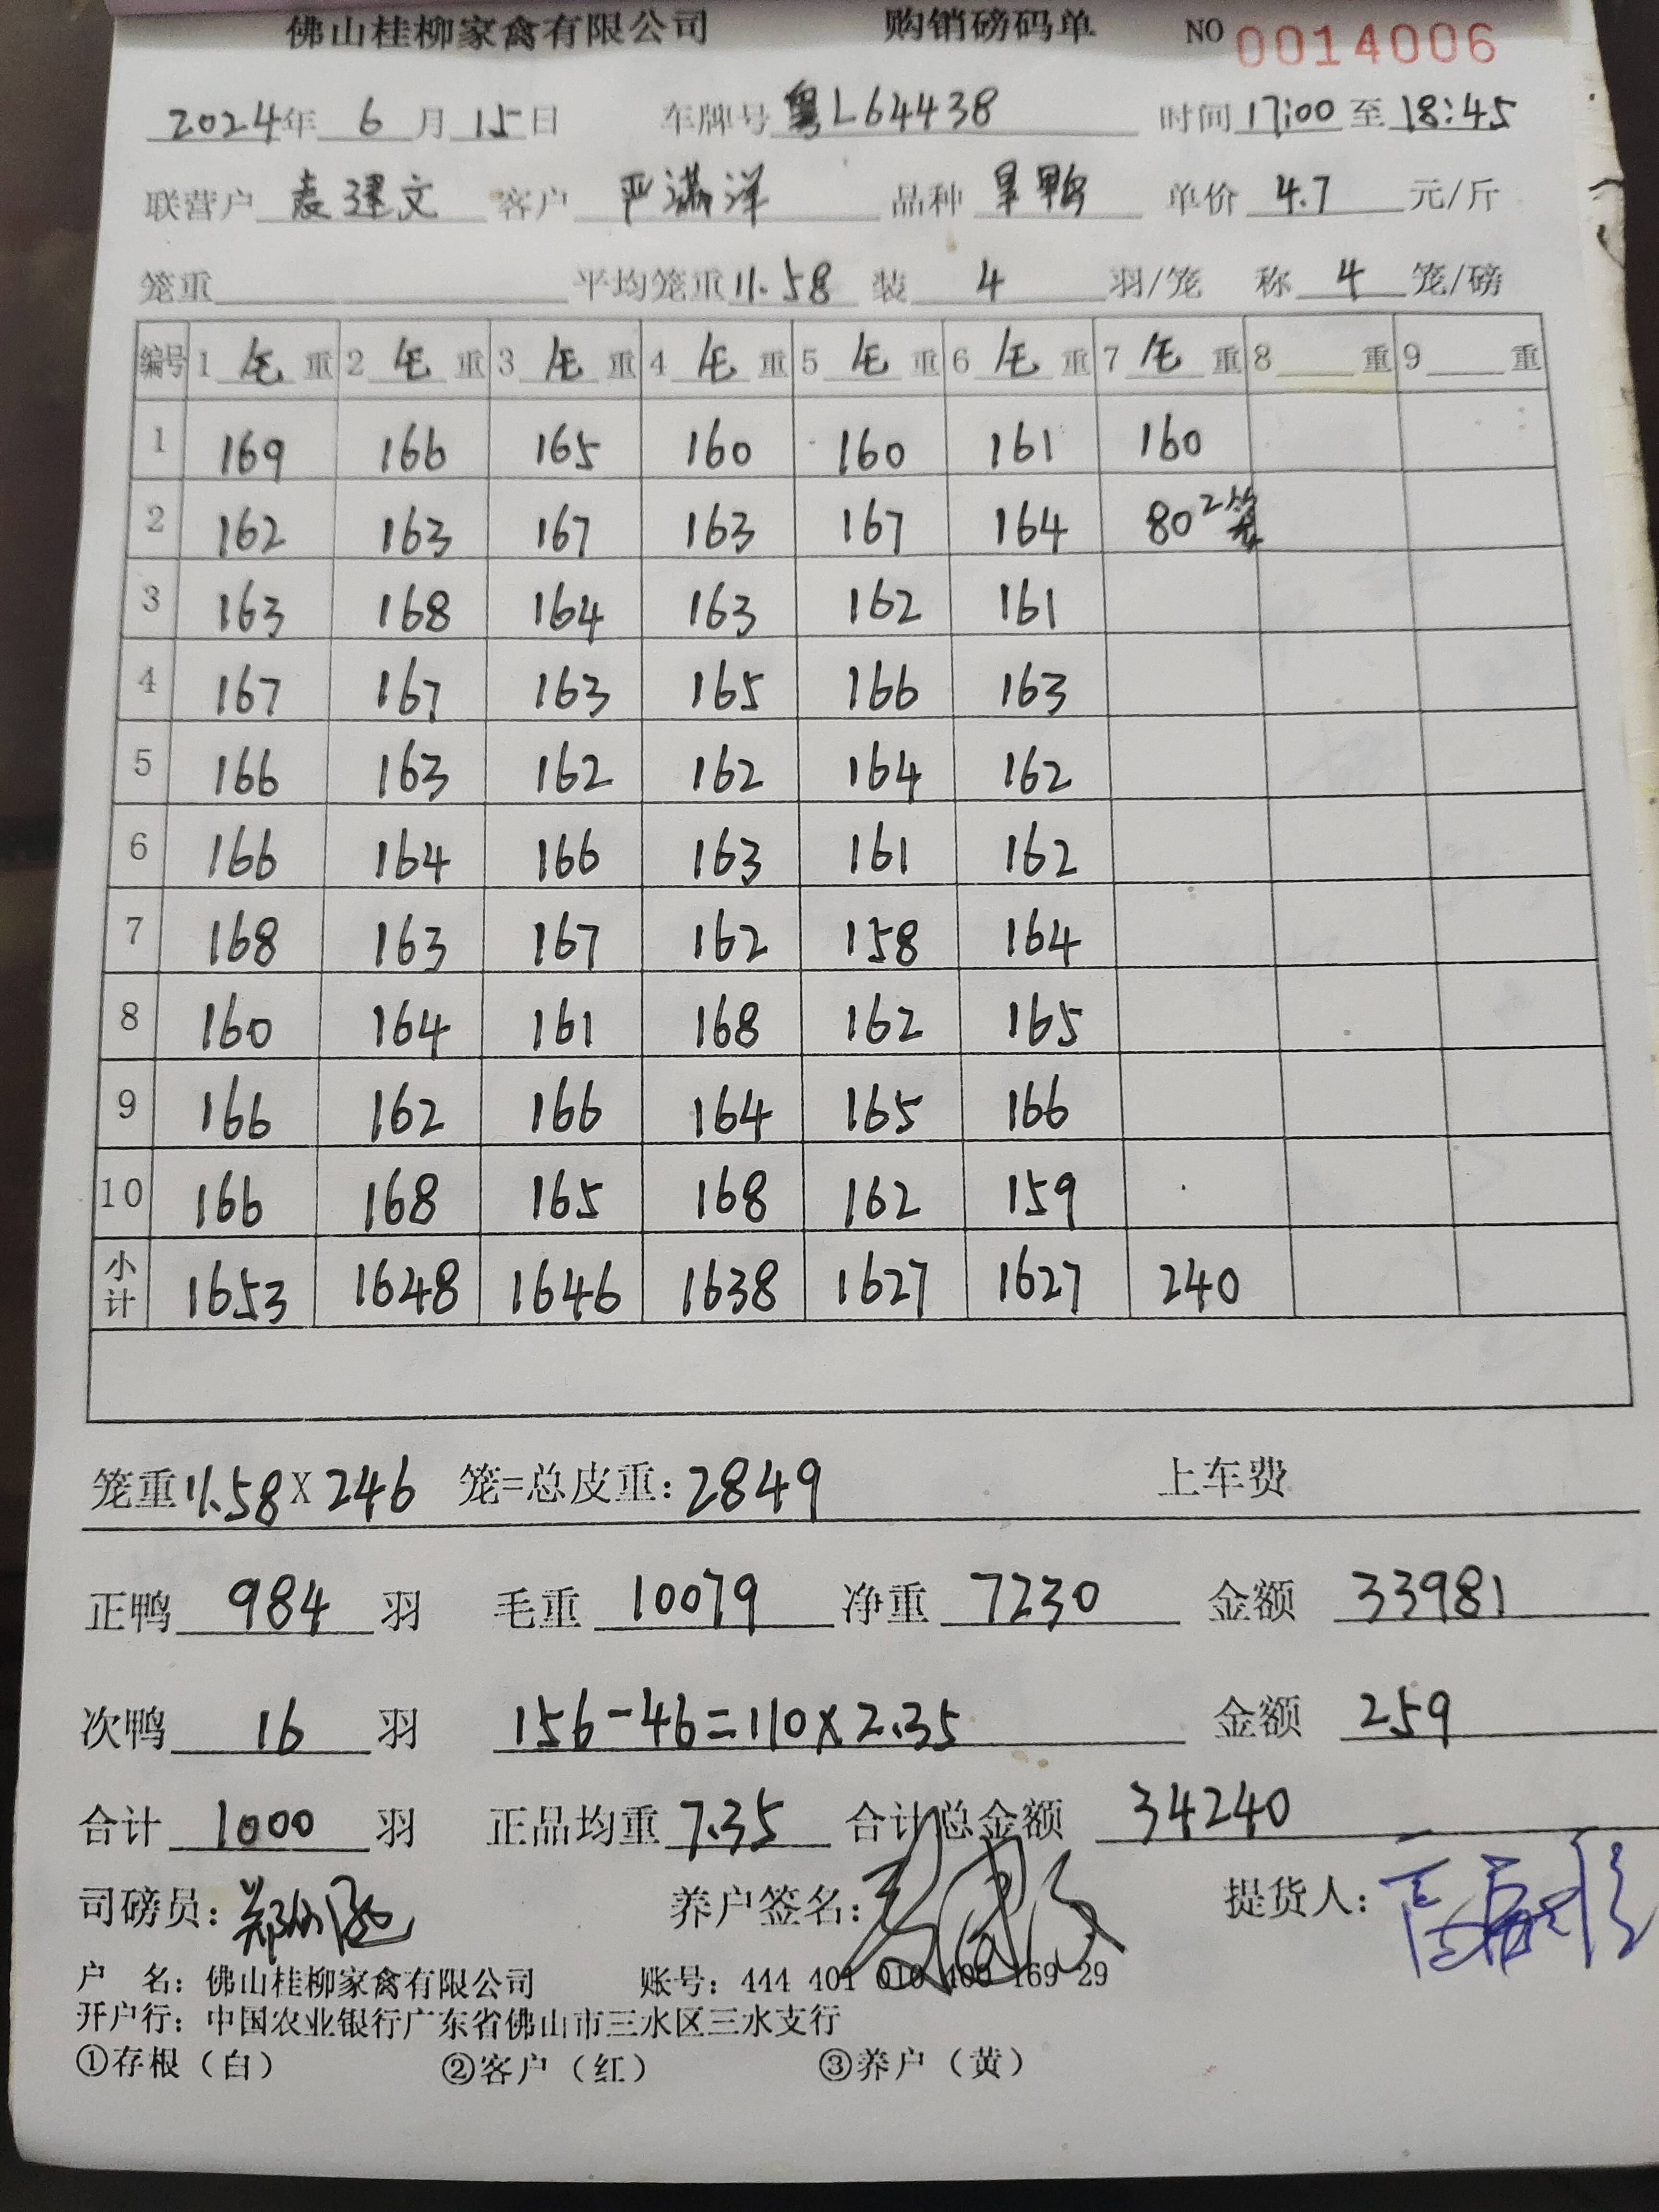 佛山桂柳家禽有限公司 购销磅码单 NO 0014006
2024年 6 月 15 日 车牌号 粤L64438 时间 17:00 至 18:45
联营户 袁建文 客户 严满洋 品种 旱鸭 单价 4.7 元/斤
笼重 平均笼重 11.58 装 4 羽/笼 称 4 笼/磅
编号 1 毛 重 2 毛 重 3 毛 重 4 毛 重 5 毛 重 6 毛 重 7 毛 重 8 重 9 重
1 169 166 165 160 160 161 160
2 162 163 167 163 167 164 80 2笼
3 163 168 164 163 162 161
4 167 167 163 165 166 163
5 166 163 162 162 164 162
6 166 164 166 163 161 162
7 168 163 167 162 158 164
8 160 164 161 168 162 165
9 166 162 166 164 165 166
10 166 168 165 168 162 159
小计 1653 1648 1646 1638 1627 1627 240
笼重 11.58 X 246 笼=总皮重: 2849 上车费
正鸭 984 羽 毛重 10079 净重 7230 金额 33981
次鸭 16 羽 156-46=110×2.35 金额 259
合计 1000 羽 正品均重 7.35 合计总金额 34240
司磅员: 养户签名: 提货人:
户 名: 佛山桂柳家禽有限公司 账号: 444 401 010 400 169 29
开户行: 中国农业银行广东省佛山市三水区三水支行
①存根（白） ②客户（红） ③养户（黄）